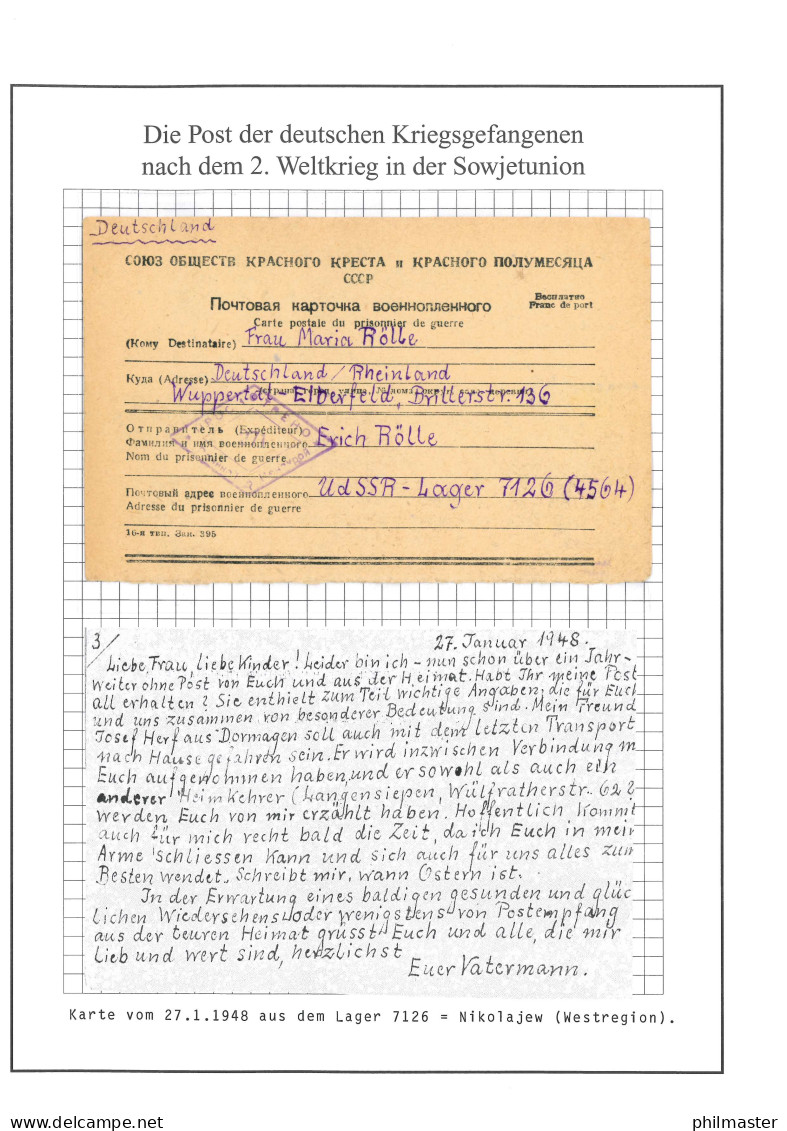 Die Post der deutschen Kriegsgefangenen
nach dem 2. Weltkrieg in der Sowjetunion
Deutschland
СОЮЗ ОБЩЕСТВ КРАСНОГО КРЕСТА и КРАСНОГО ПОЛУМЕСЯЦА
СССР
Почтовая карточка военнопленного
Бесплатно
Franc de port
Carte postale du prisonnier de guerre
(Кому Destinataire) Frau Maria Rölle
Куда (Adresse) Deutschland / Rheinland
Wuppertal-Elberfeld, Brillerstr. 136
Отправитель (Expéditeur)
Фамилия и имя военнопленного Erich Rölle
Nom du prisonnier de guerre
Почтовый адрес военнопленного UdSSR-Lager 7126 (4564)
Adresse du prisonnier de guerre
16-я тип. Зак. 395
3/ 27. Januar 1948.
Liebe Frau, liebe Kinder! Leider bin ich - nun schon über ein Jahr -
weiter ohne Post von Euch und aus der Heimat. Habt Ihr meine Post
all erhalten? Sie enthielt zum Teil wichtige Angaben, die für Euch
und uns zusammen von besonderer Bedeutung sind. Mein Freund
Josef Herf aus Dormagen soll auch mit dem letzten Transport
nach Hause gefahren sein. Er wird inzwischen Verbindung m
Euch aufgenommen haben, und er sowohl als auch ein
anderer Heimkehrer (Langensiepen, Wülfratherstr. 62?
werden Euch von mir erzählt haben. Hoffentlich kommt
auch für mich recht bald die Zeit, da ich Euch in mein
Arme schliessen kann und sich auch für uns alles zum
Besten wendet. Schreibt mir, wann Ostern ist.
In der Erwartung eines baldigen gesunden und glüc
lichen Wiedersehens oder wenigstens von Postempfang
aus der teuren Heimat grüsst Euch und alle, die mir
lieb und wert sind, herzlichst
Euer Vatermann.
Karte vom 27.1.1948 aus dem Lager 7126 = Nikolajew (Westregion).
philmaster.com
philmaster